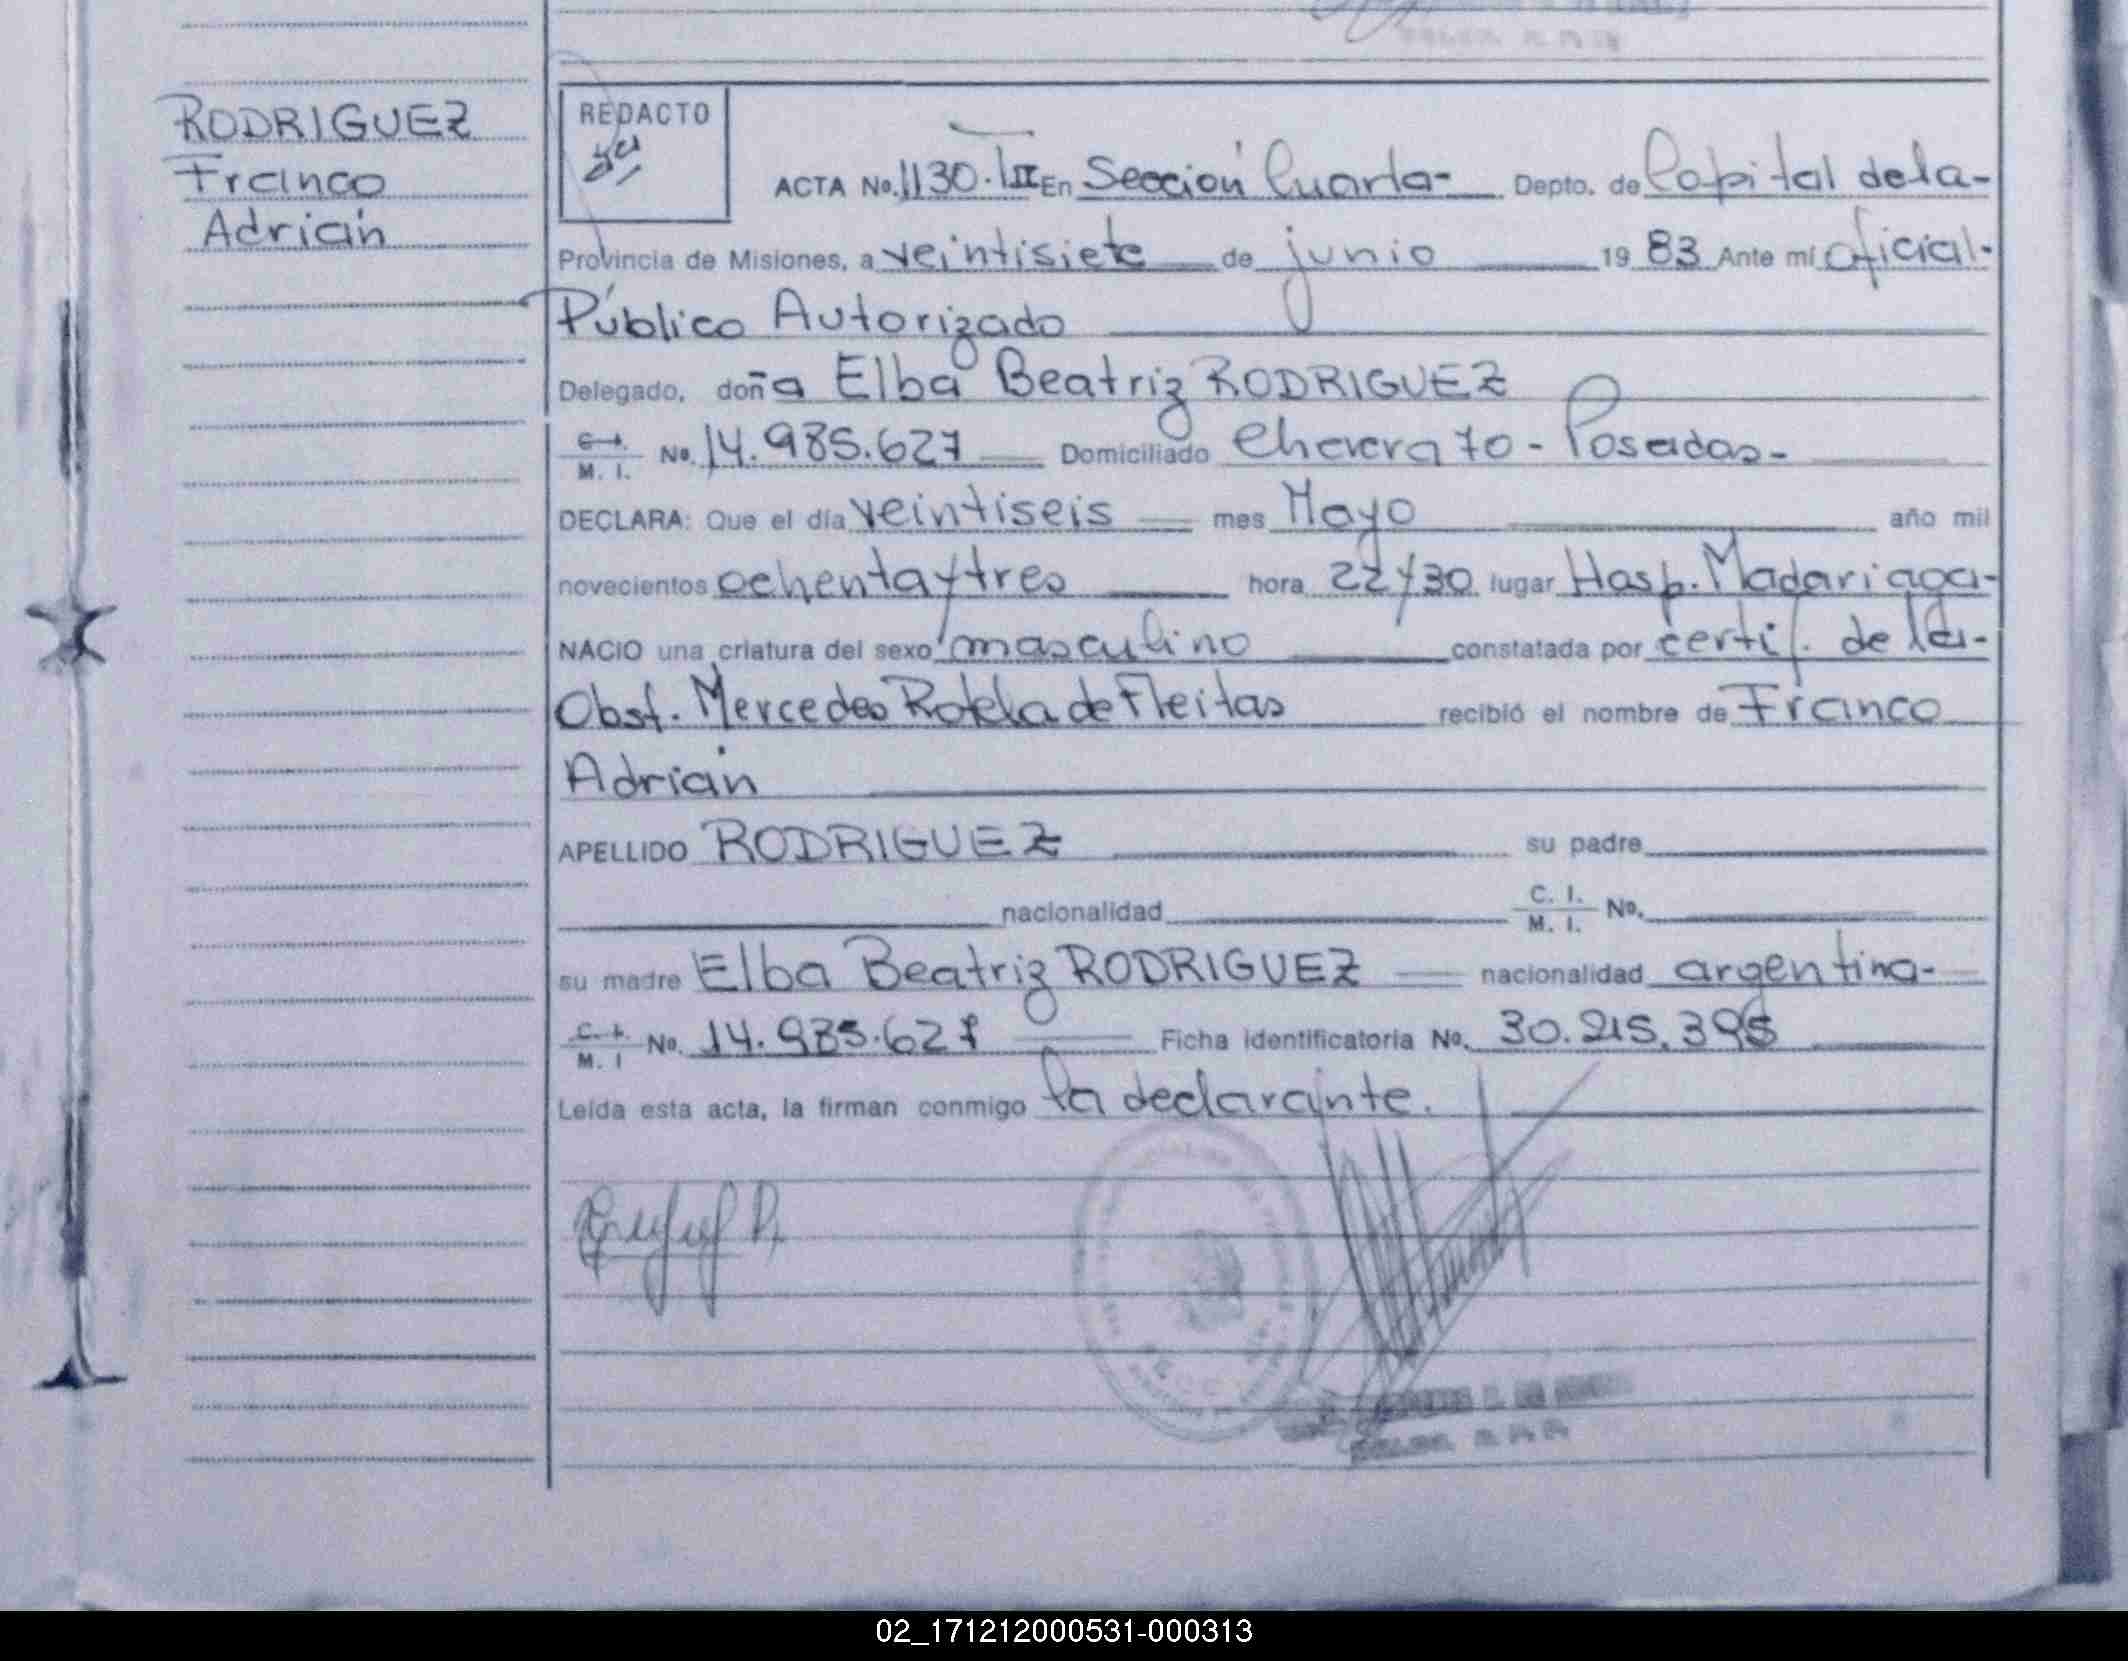 RODRIGUEZ
Franco
Adrián
REDACTO
ACTA No. 1130.TII En Sección Cuarta- Depto. de Capital de la-
Provincia de Misiones, a veintisiete de junio 19 83 Ante mí oficial-
Público Autorizado
Delegado, doña Elba Beatriz RODRIGUEZ
C. I. M. I. No. 14.985.627 Domiciliado 70 - Posadas-
DECLARA: Que el día veintiseis mes Mayo año mil
novecientos ochentaytres hora 22y30 lugar Hosp. Madariaga-
NACIO una criatura del sexo masculino constatada por certif. de la-
Obst. Mercedes Rotela de Fleitas recibió el nombre de Franco
Adrián
APELLIDO RODRIGUEZ su padre
nacionalidad C. I. M. I. No.
su madre Elba Beatriz RODRIGUEZ nacionalidad argentina-
C. I. M. I No. 14.985.627 Ficha identificatoria No. 30.215.395
Leída esta acta, la firman conmigo la declarante.
02_171212000531-000313